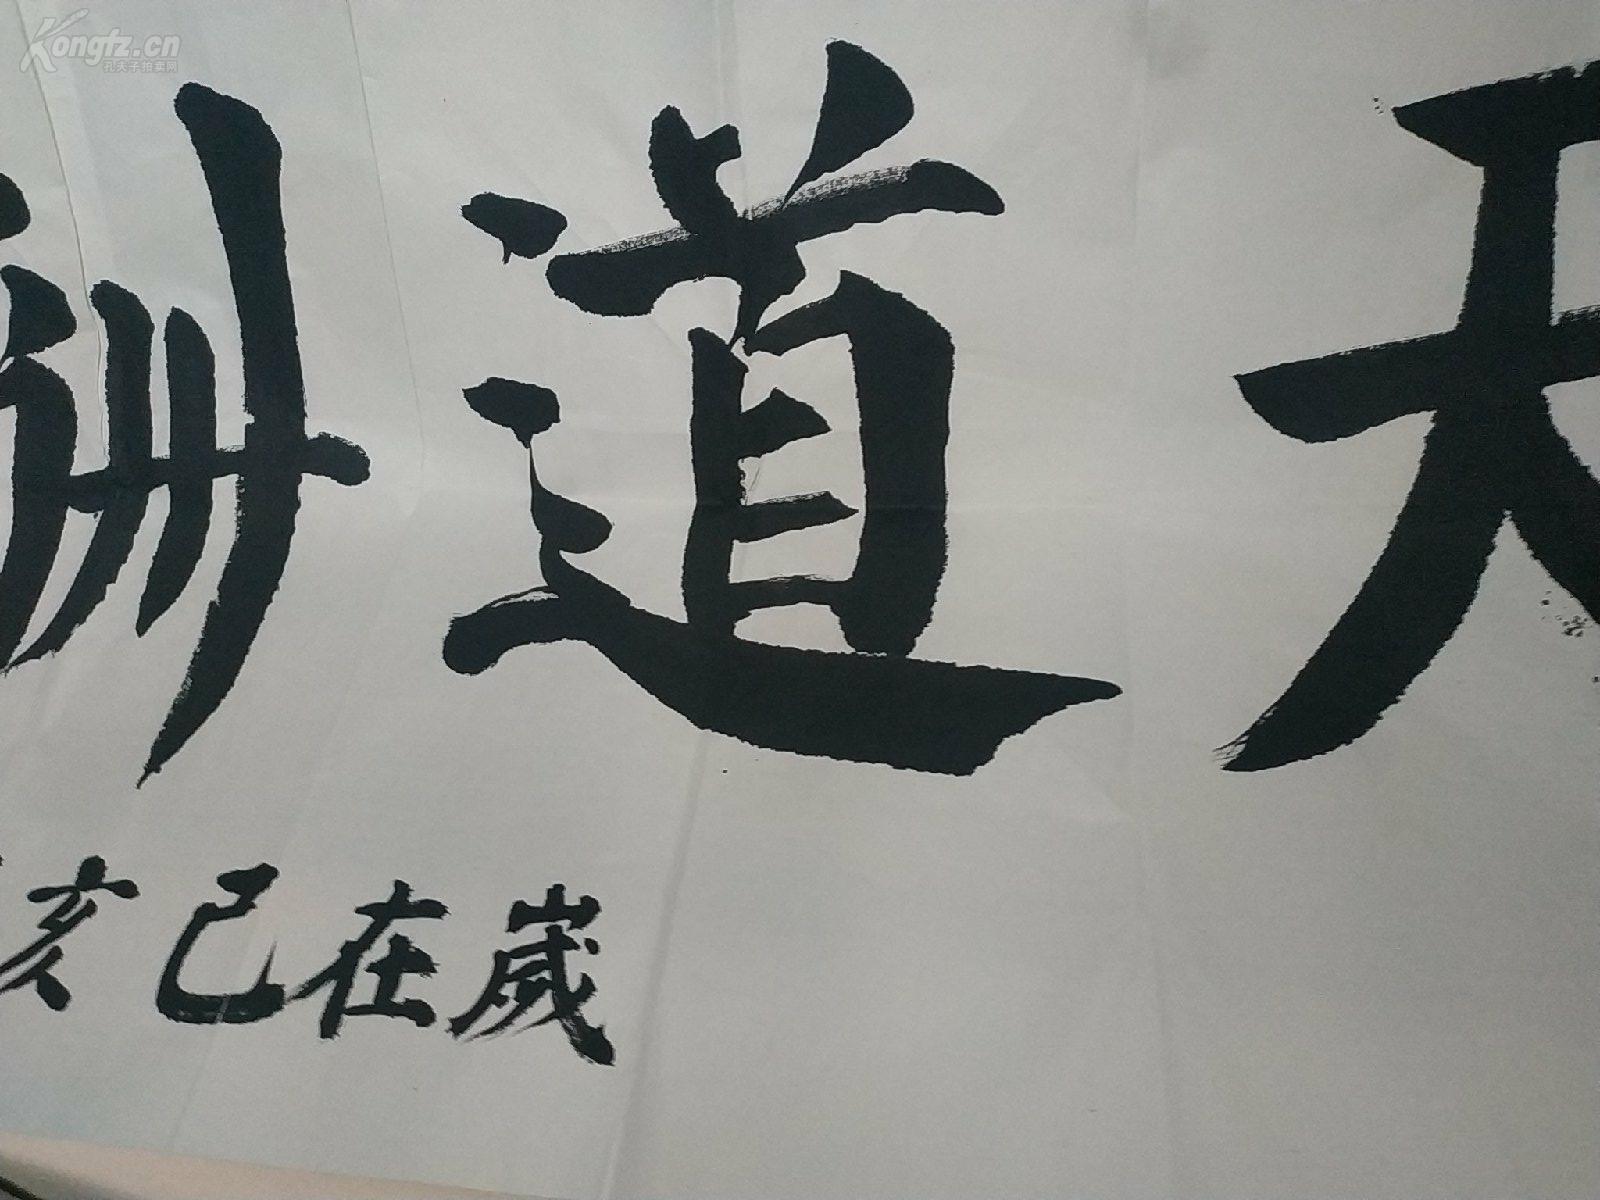 Kongfz.cn
孔夫子拍卖网
天道酬
歲在己亥